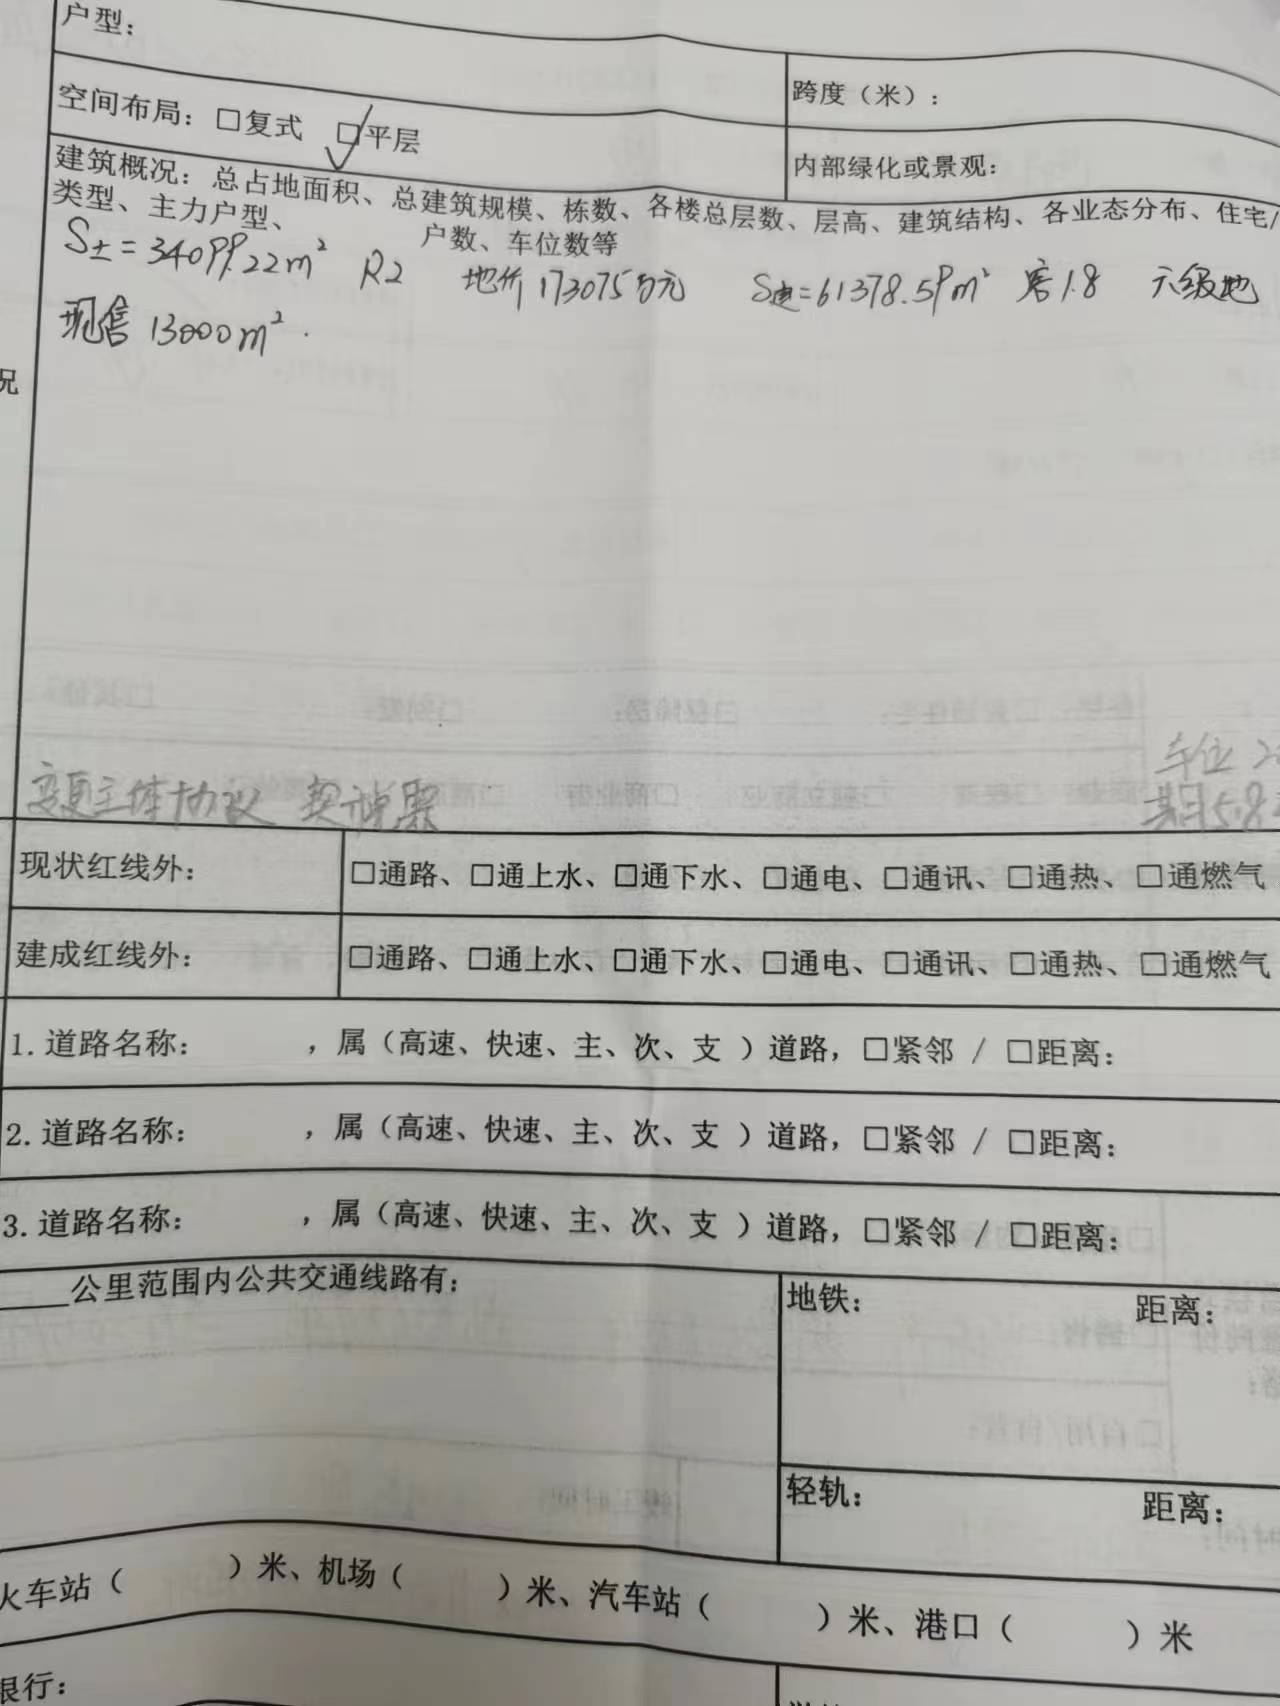 户型：
跨度（米）：
空间布局：□复式 □平层
内部绿化或景观：
建筑概况：总占地面积、总建筑规模、栋数、各楼总层数、层高、建筑结构、各业态分布、住宅/
类型、主力户型、户数、车位数等
S土=34099.22m² R2 地价173075万元 S建=61378.59m² 容1.8 六级地
现售13000m².
况
车位
变更主体协议 契税票
现状红线外： □通路、□通上水、□通下水、□通电、□通讯、□通热、□通燃气
建成红线外： □通路、□通上水、□通下水、□通电、□通讯、□通热、□通燃气
1. 道路名称： ，属（高速、快速、主、次、支 ）道路，□紧邻 / □距离：
2. 道路名称： ，属（高速、快速、主、次、支 ）道路，□紧邻 / □距离：
3. 道路名称： ，属（高速、快速、主、次、支 ）道路，□紧邻 / □距离：
____公里范围内公共交通线路有：
地铁： 距离：
轻轨： 距离：
火车站（ ）米、机场（ ）米、汽车站（ ）米、港口（ ）米
银行：